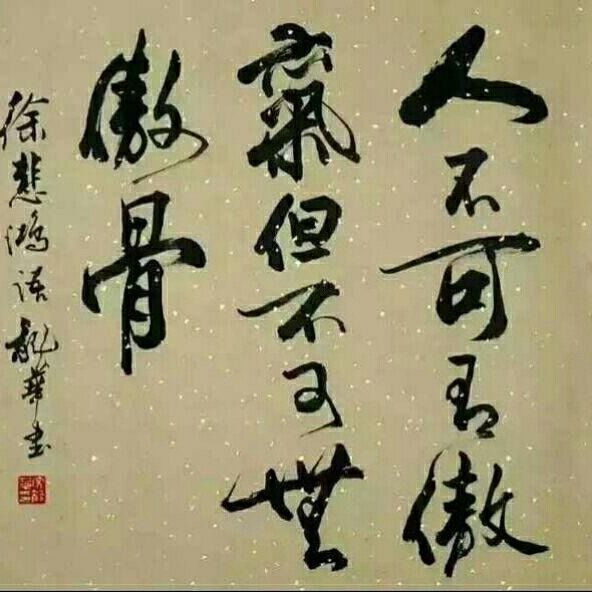 人不可有傲
氣但不可無
傲骨
徐悲鴻語龍華书